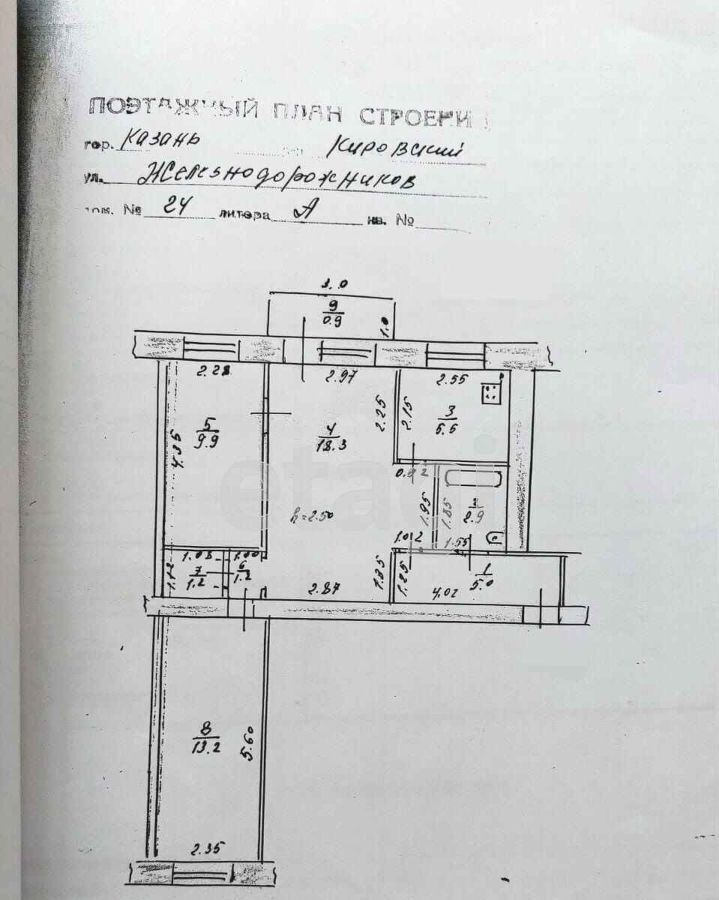 ПОЭТАЖНЫЙ ПЛАН СТРОЕНИ
гор. Казань Кировский
ул. Железнодорожников
дом. № 24 литера А кв. №
1.0
9
0.9
1.0
2.23 2.97 2.55
5
9.9
4.35
4
18.3
2.25
2.15
3
5.5
0.92
etagi
h=2.50
1.95
1.85
2
2.9
1.02 1.55
1.03 1.00
1.12
7
1.2
6
1.2
2.87
1.25
1.25
4.02
1
5.0
8
13.2
5.60
2.35